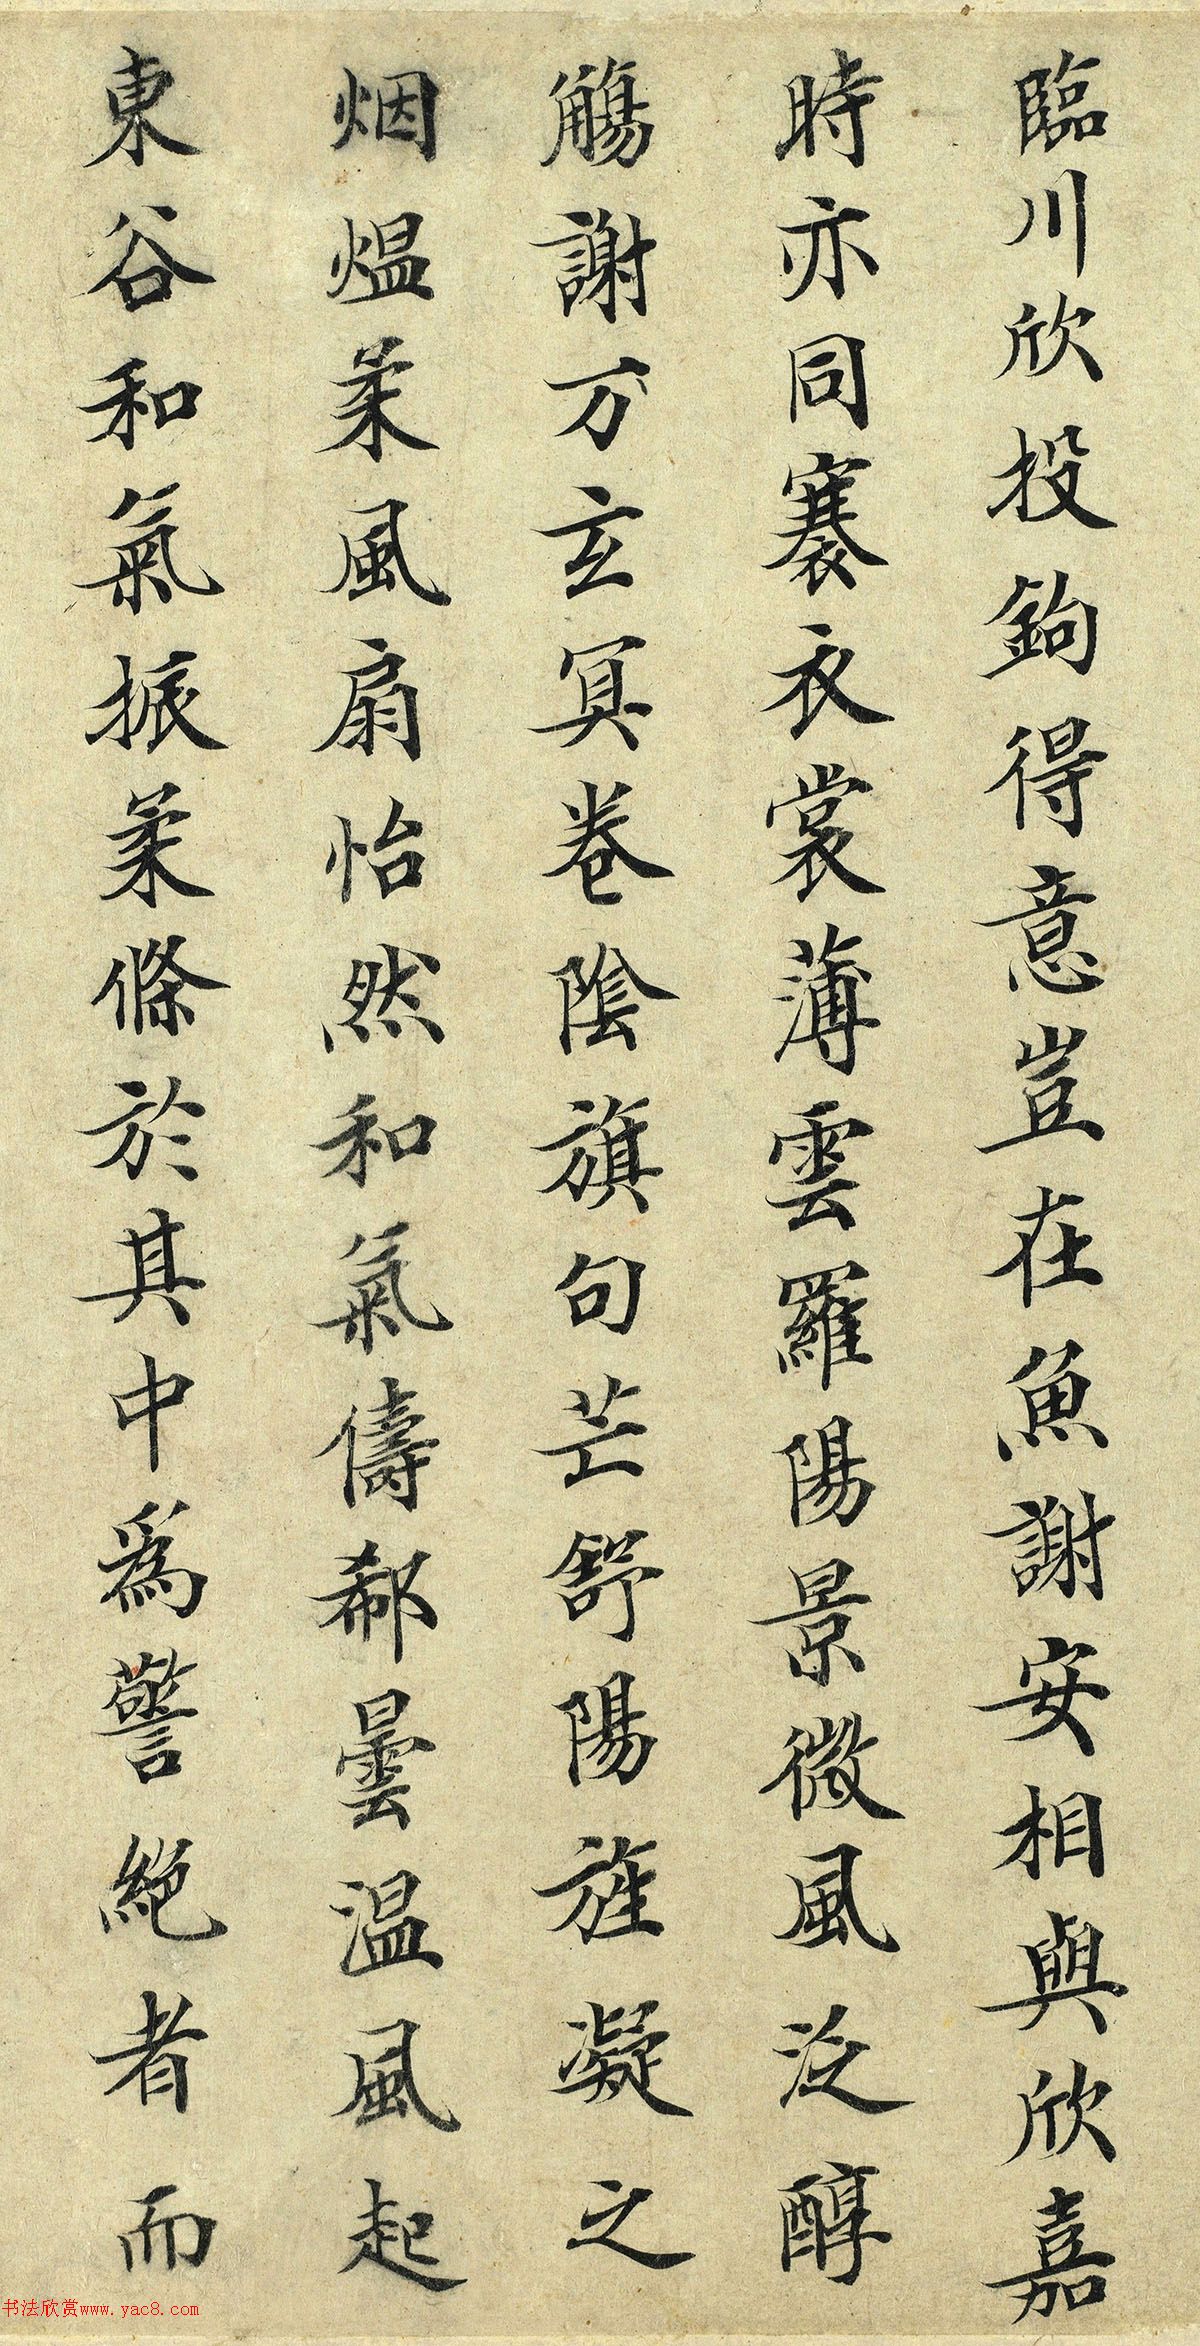 臨川欣投鉤得意豈在魚謝安相與欣嘉
時亦同褰衣裳薄雲羅陽景微風泛醇
觴謝万玄冥卷陰旗句芒舒陽旌凝之
烟煴柔風扇怡然和氣儔郗曇温風起
東谷和氣振柔條於其中爲警絕者而
书法欣赏www.yac8.com